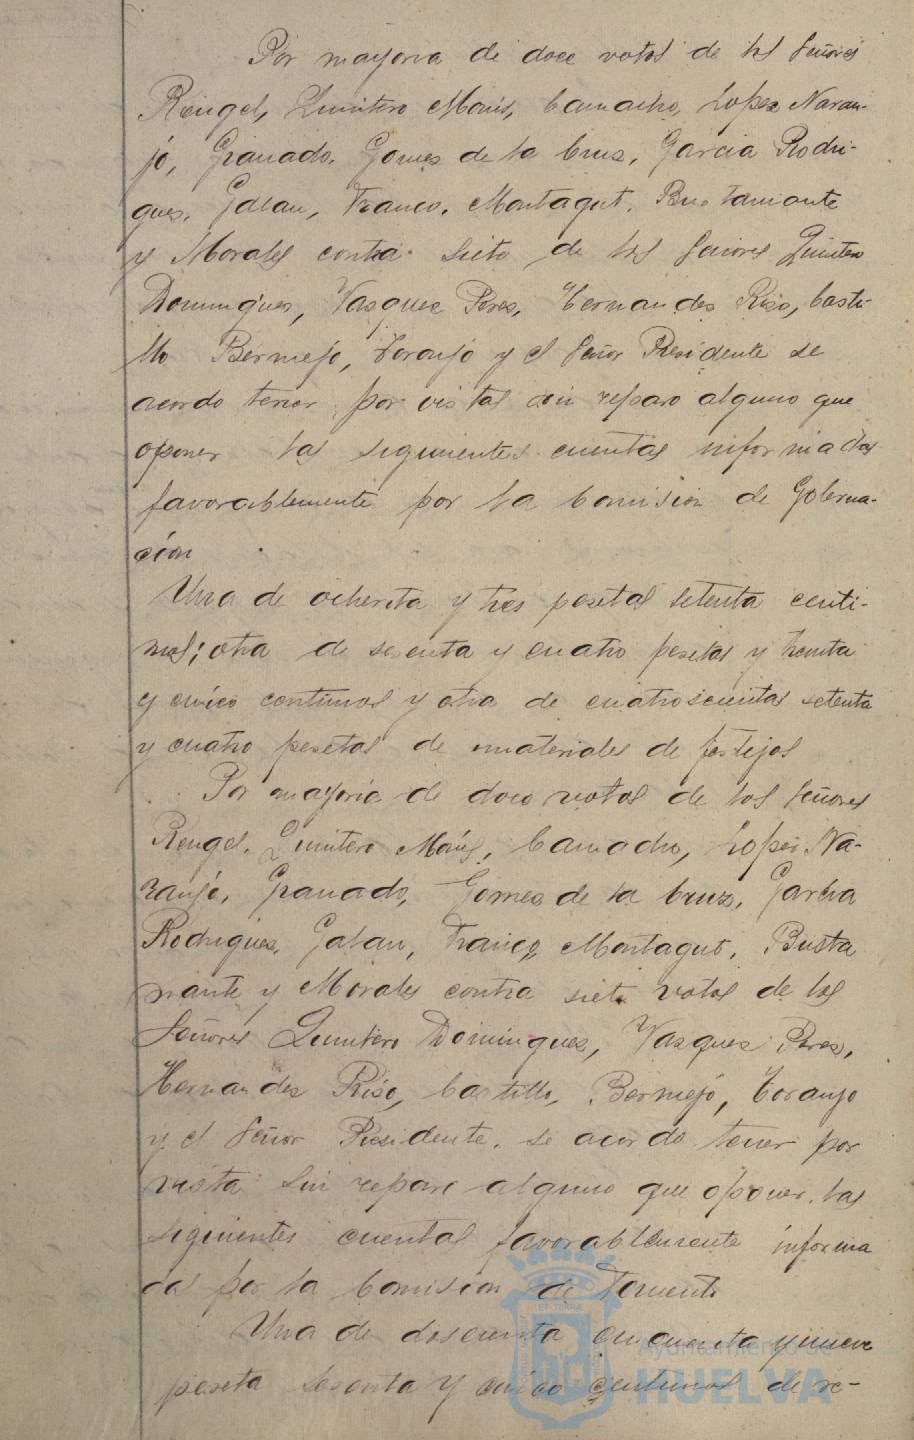 Por mayoria de doce votos de los Señores
Rengel, Quintero Moris, Camacho, Lopez Naran-
jo, Granado, Gomez de la Cruz, Garcia Rodri-
gues, Galan, Franco, Montagut, Bustamante
y Morales contra siete de los Señores Quintero
Domingues, Vasquez Peres, Hernandes Riso, Casti-
llo Bermejo, Toranjo y el Señor Presidente se
acordo tener por vistas sin reparo alguno que
oponer las siguientes cuentas informadas
favorablemente por la Comision de Goberna-
cion
Una de ochenta y tres pesetas setenta centi-
mos; otra de sesenta y cuatro pesetas y treinta
y cinco centimos y otra de cuatroscientas setenta
y cuatro pesetas de materiales de festejos
Por mayoria de doce votos de los Señores
Rengel, Quintero Moris, Camacho, Lopez Na-
ranjo, Granado, Gomes de la Cruz, Garcia
Rodrigues, Galan, Franco, Montagut, Busta
mante y Morales contra siete votos de los
Señores Quintero Domingues, Vasques Peres,
Hernandes Riso, Castillo, Bermejo, Toranjo
y el Señor Presidente, se acordo tener por
vista sin reparo alguno que oponer, las
siguientes cuentas favorablemente informa
das por la Comision de Fomento
Una de doscienta cincuenta y nueve
peseta sesenta y cinco centimos de re-
Ayuntamiento de
HUELVA